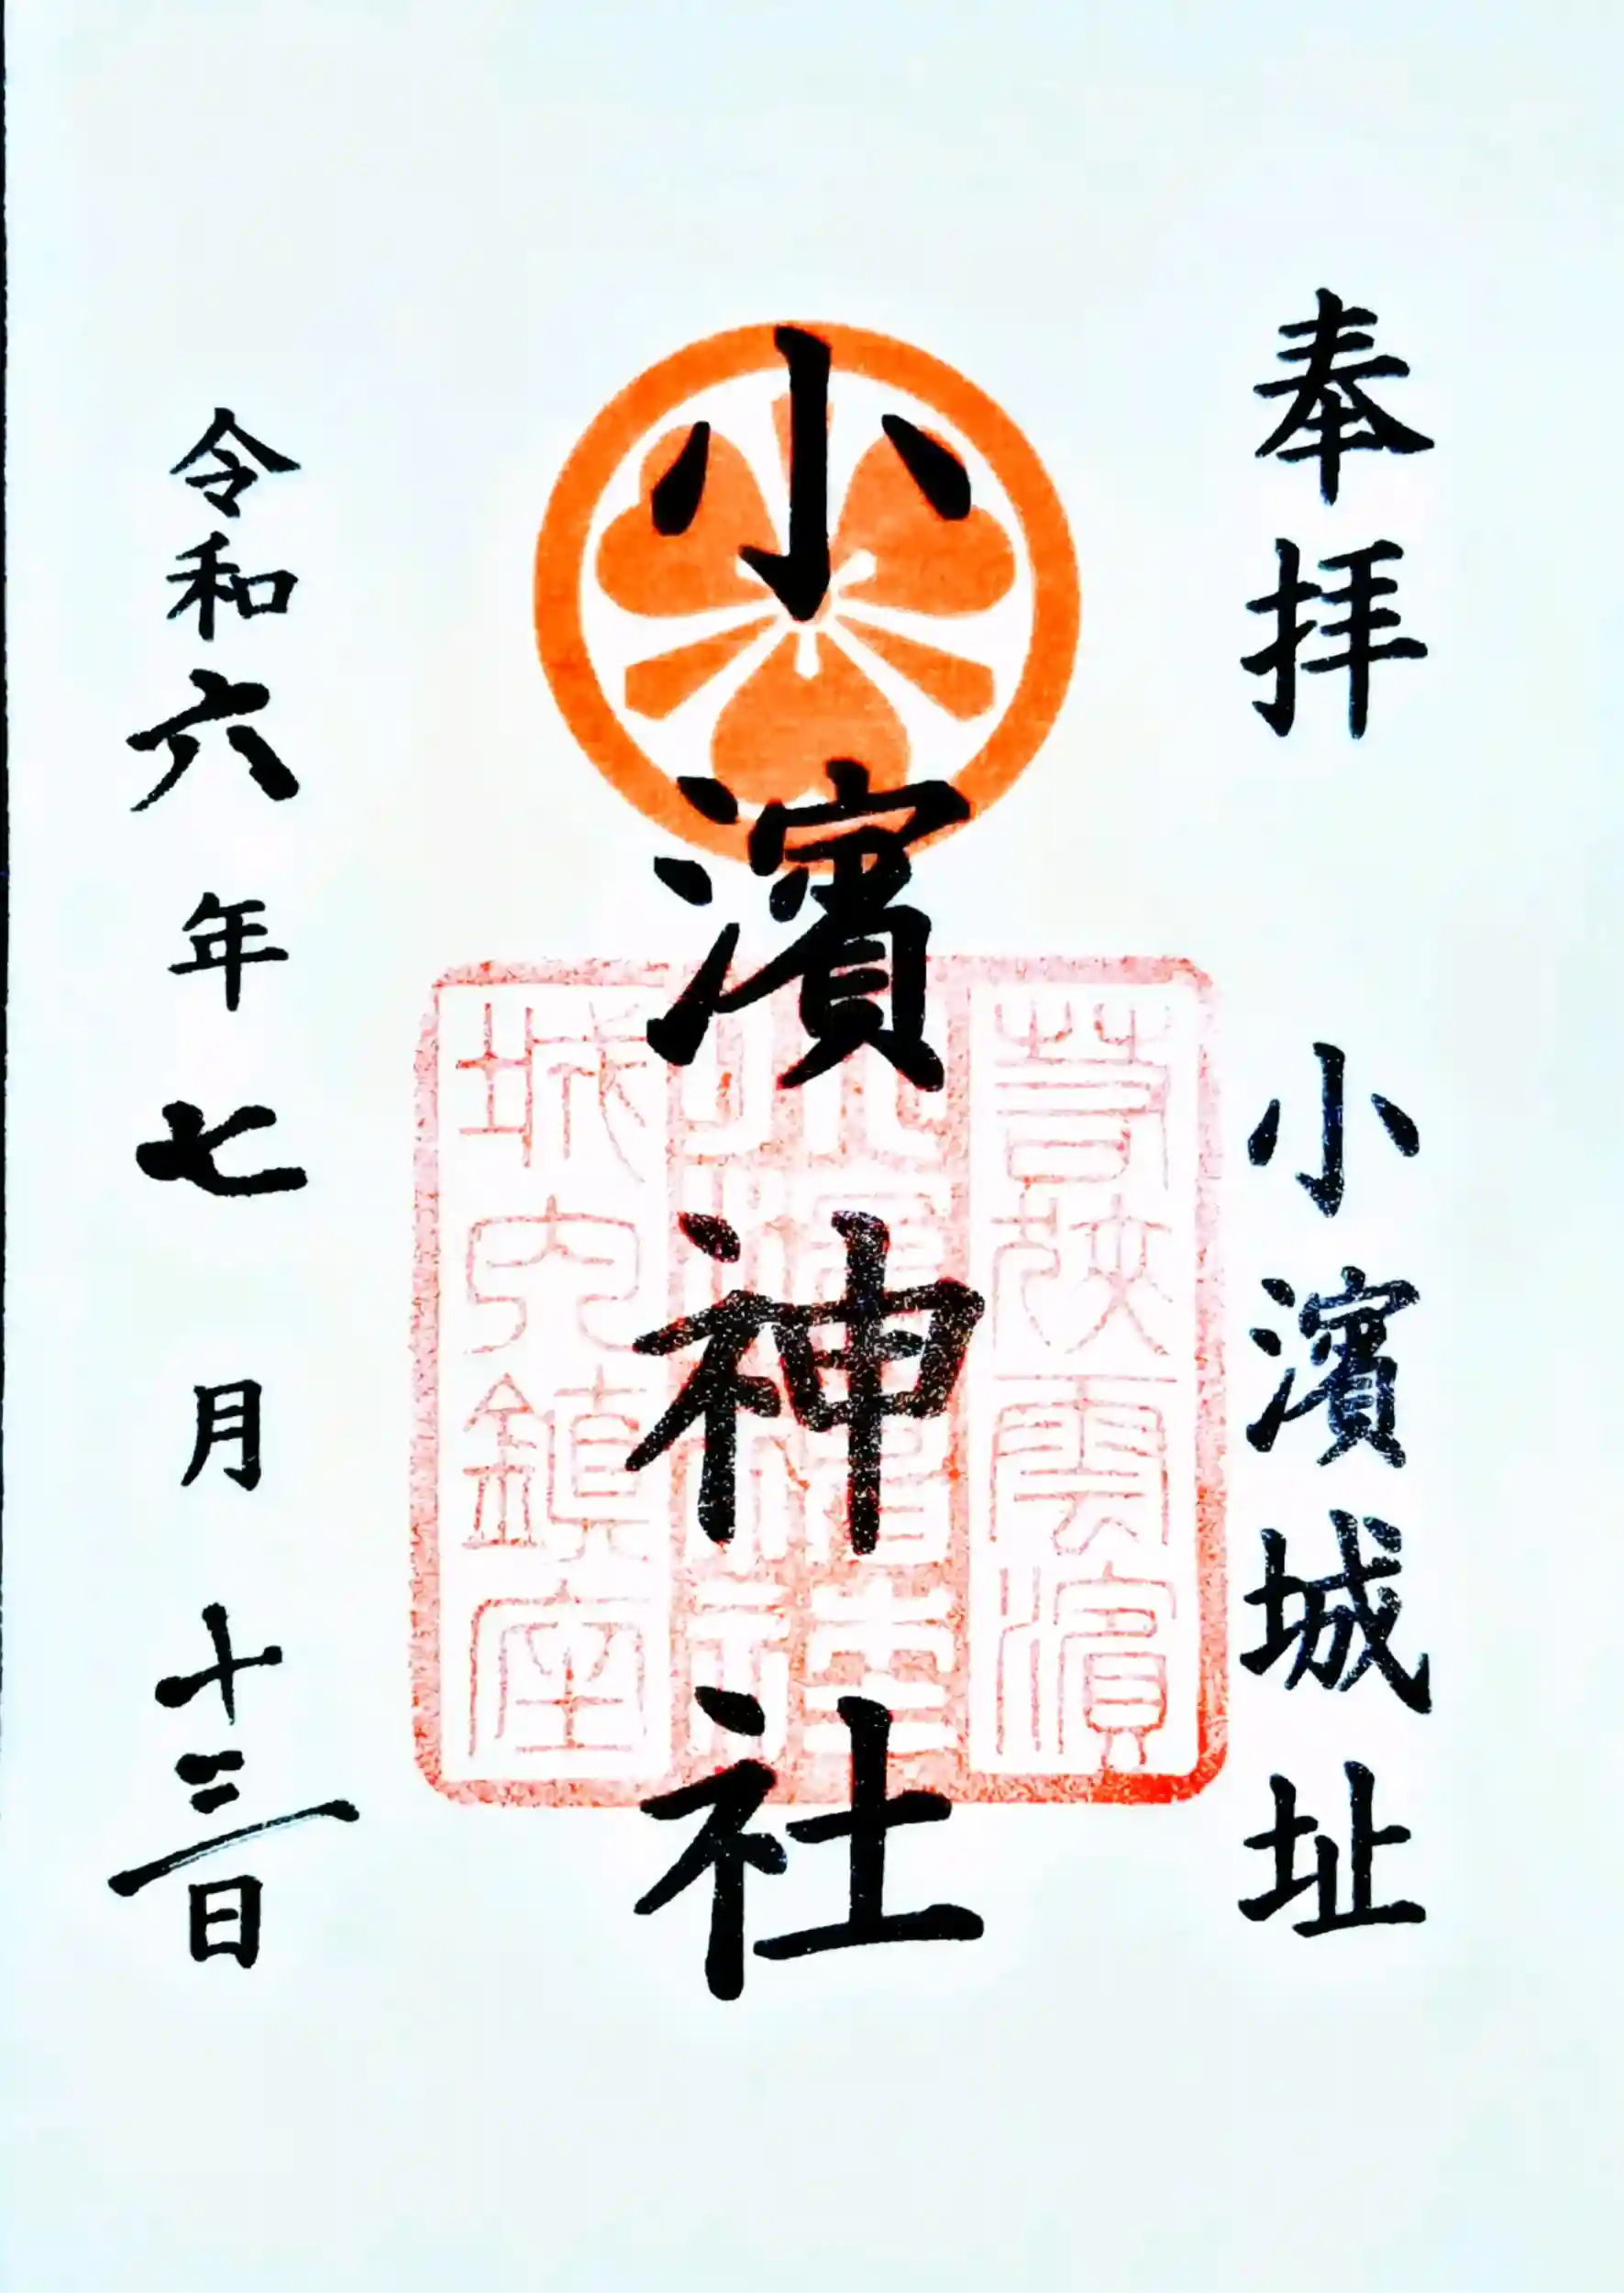 奉拝 小濱城址
小濱神社
若狹雲濱
小濱神社
城内鎮座
令和六年七月十三日